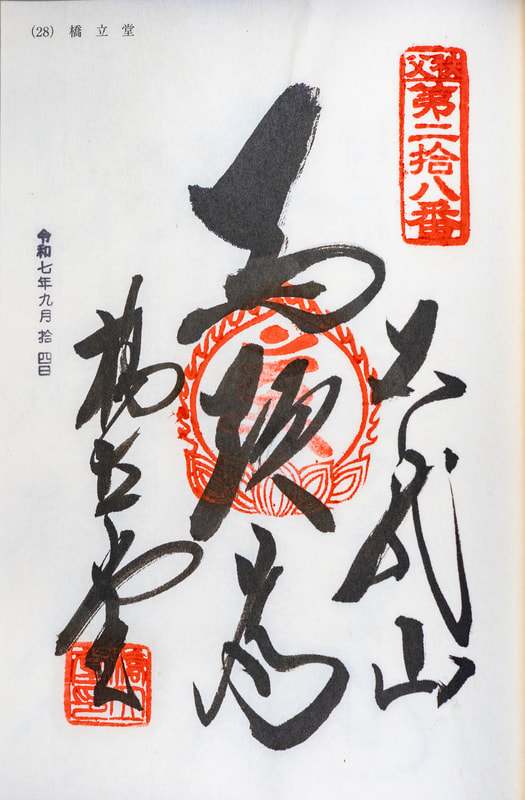 (28) 橋立堂
秩父
第二拾八番
石龍山
馬頭尊
橋立堂
令和七年九月拾四日